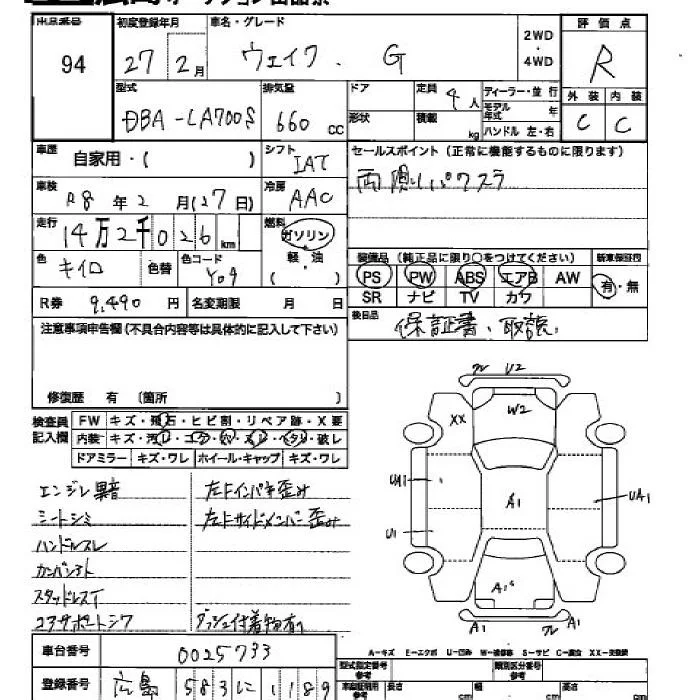 出品番号 94
初度登録年月 27 2月
車名・グレード ウェイク . G
2WD・4WD
評価点 R
外装 C 内装 C
型式 DBA-LA700S
排気量 660 cc
ドア
定員 4人
形状
積載 kg
ディーラー・並行
モデル年式 年
ハンドル 左・右
車歴 自家用・( )
シフト IAT
セールスポイント(正常に機能するものに限ります)
両側パワスラ
車検 R8年2月(27日)
冷房 AAC
走行 14万2千026km
燃料 ガソリン・軽・油 ( )
色 キイロ 色替
色コード Y09
装備品(純正品に限り○をつけてください)
新車保証書 有・無
PS PW ABS エアB AW
SR ナビ TV カワ
R券 9,490円
名変期限 月 日
後日品 保証書、取説
注意事項申告欄(不具合内容等は具体的に記入して下さい)
修復歴 有 (箇所 )
検査員記入欄
FW キズ・飛石・ヒビ割・リペア跡・X要
内装 キズ・汚レ・コゲ・穴・スレ・ヘタリ・破レ
ドアミラー キズ・ワレ ホイール・キャップ キズ・ワレ
エンジン異音
シートシミ
ハンドルスレ
スタッドレスT
コアサポートシワ
左Fインパネ歪み
左Fサイドメンバー歪み
ダッシュ付着物有り
U2
XX
W2
UA1
A1
UA1
U1
A1
A1
A1
A-キズ E-エクボ U-凹み W-補修跡 S-サビ C-腐食 XX-交換跡
車台番号 0025733
登録番号 広島 583 に 1189
型式指定番号 参考
類別区分番号 参考
車庫証明用 参考
長さ cm
幅 cm
高さ cm